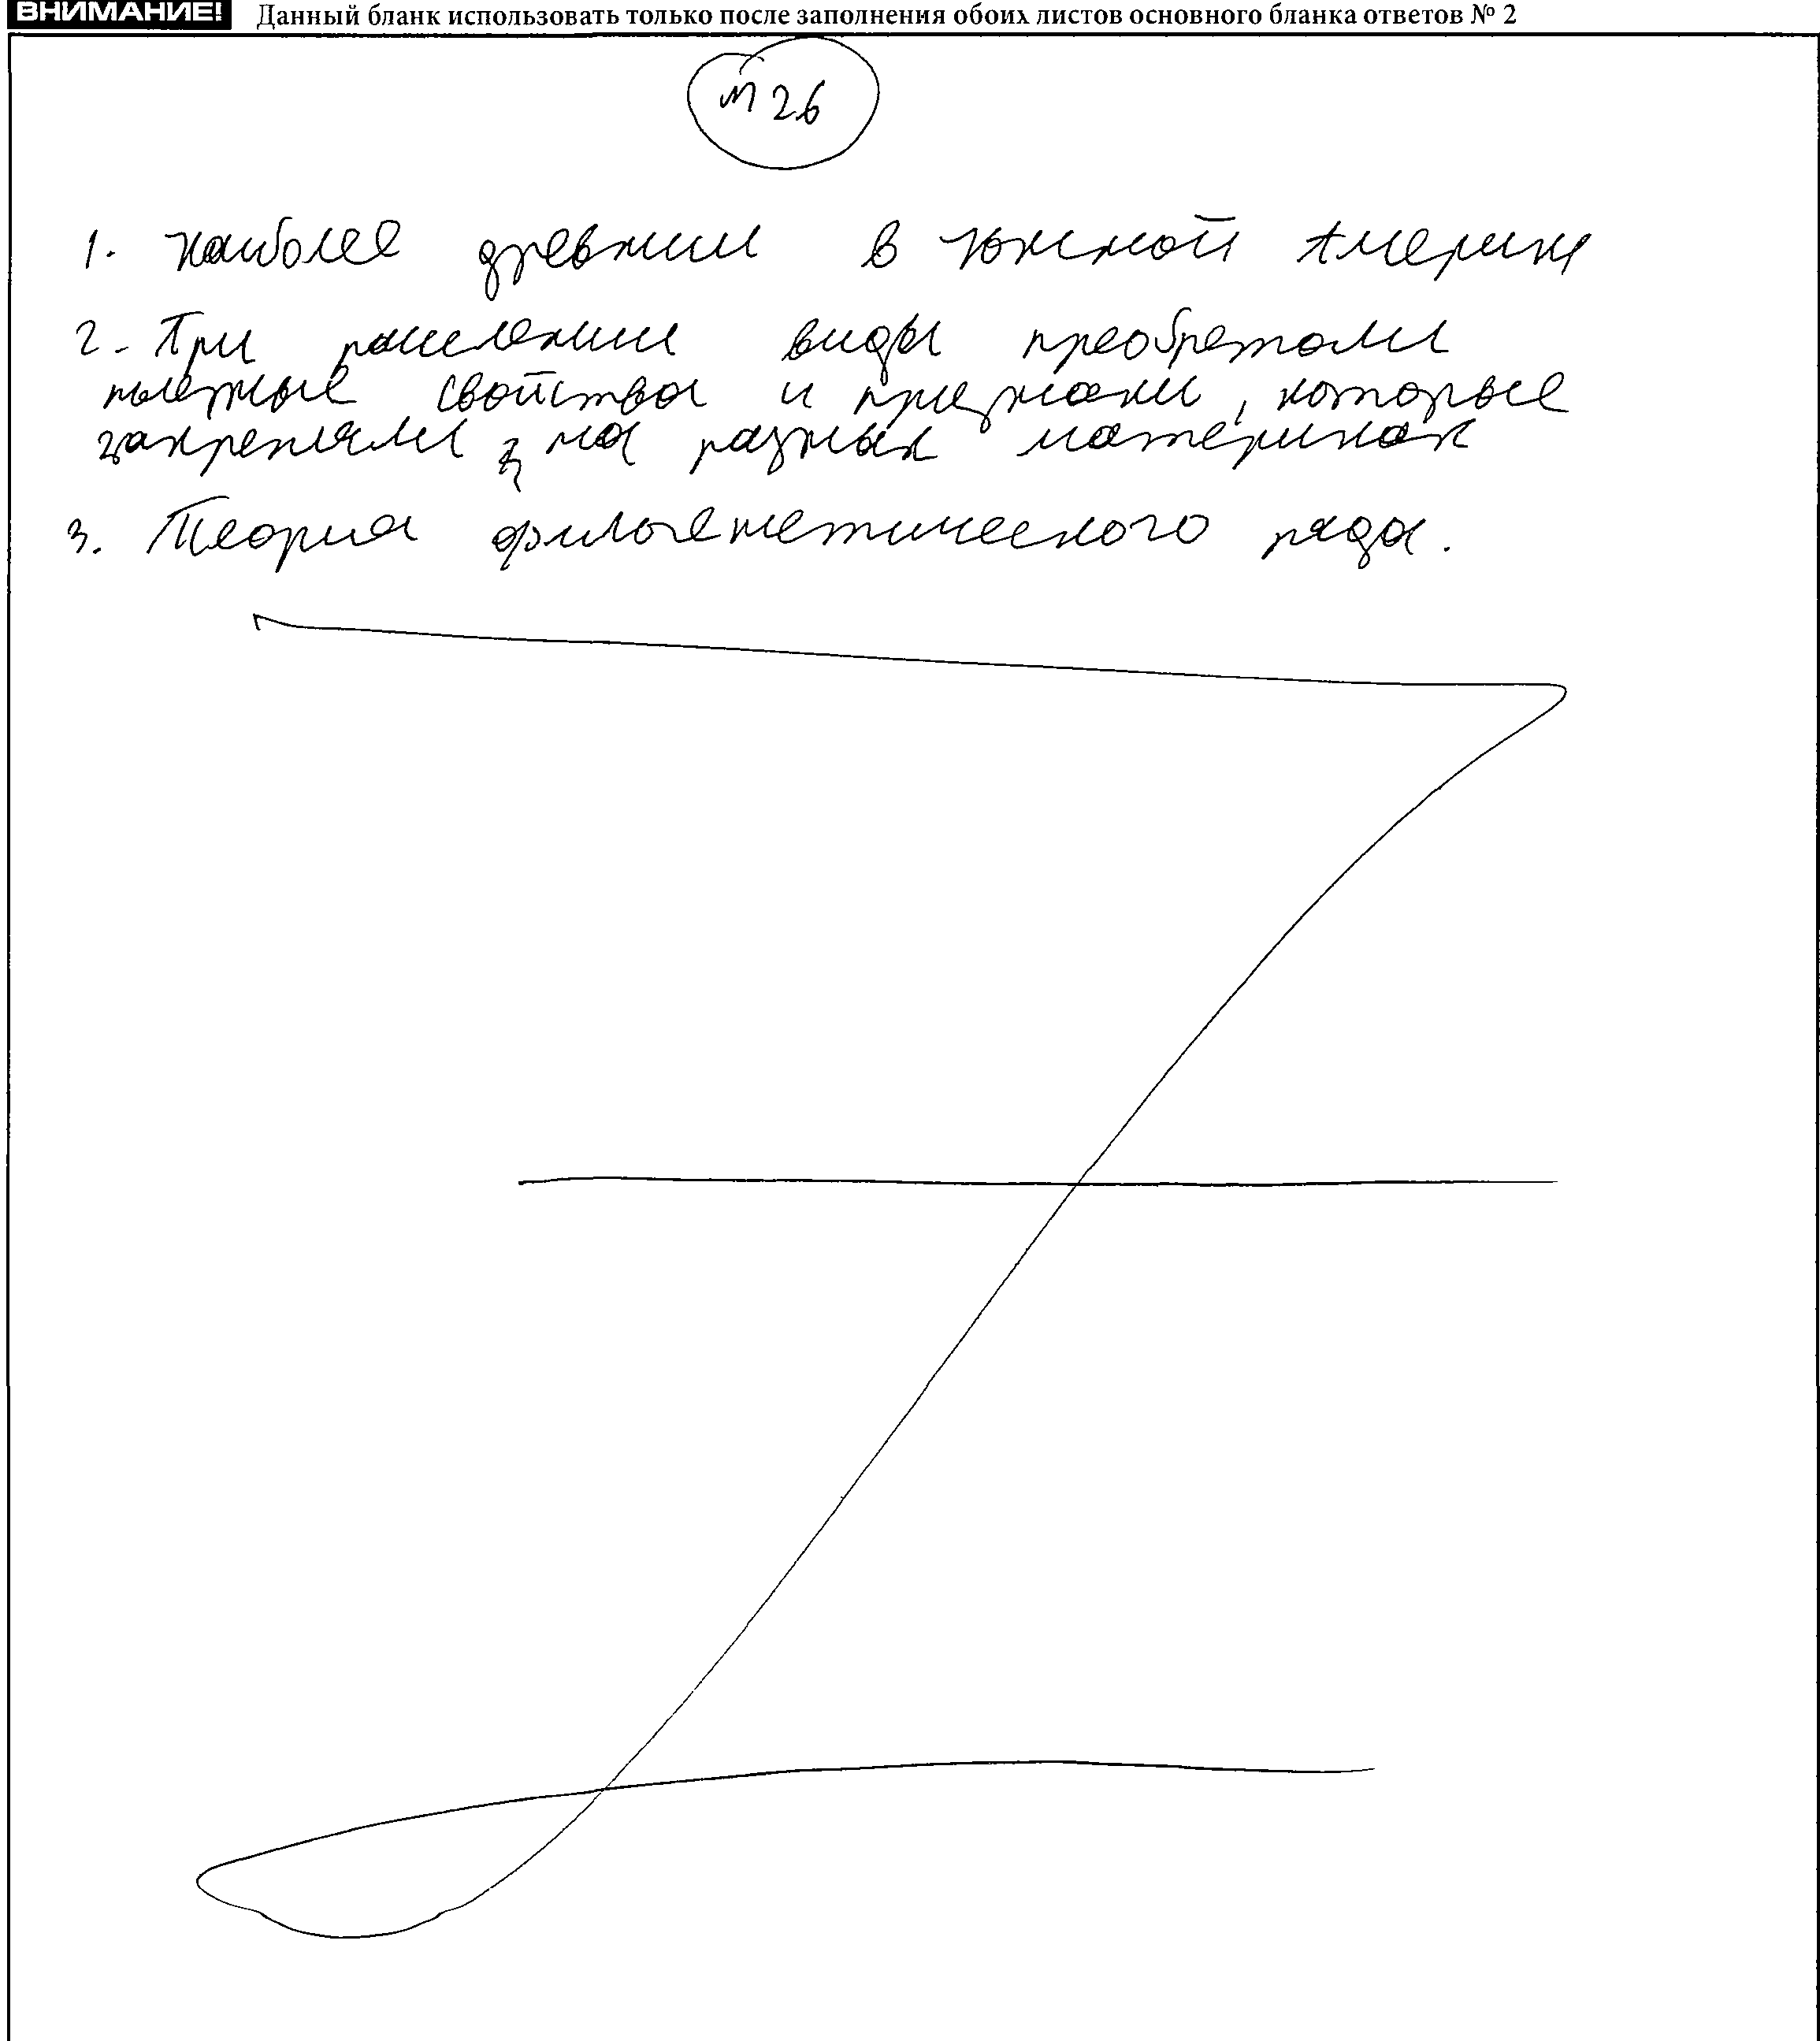 ВНИМАНИЕ! Данный бланк использовать только после заполнения обоих листов основного бланка ответов № 2
№ 26
1. Наиболее древнии в Южной Америке
2. При расселении виды преобретали
полезные свойства и признаки, которые
закрепляли на разных материках
3. Теория филогенетического ряда.